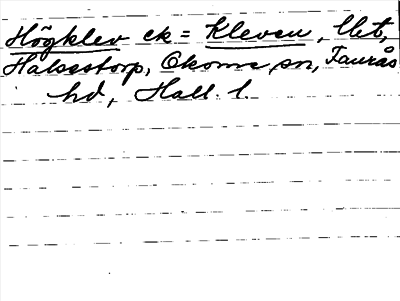 Högklev ek = Kleven, Ut,
Halvastorp, Okome sn, Faurås
hd, Hall. l.